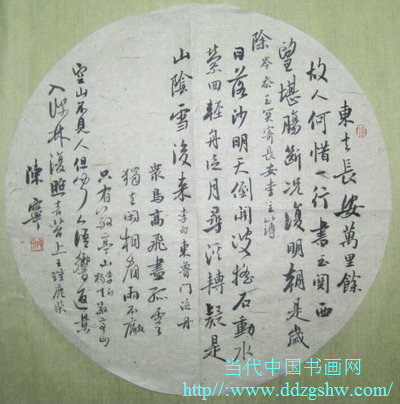 東去長安萬里餘
故人何惜一行書玉關西
望堪腸斷况復明朝是歲
除 岑參玉关寄長安李主簿
日落沙明天倒開波搖石動水
縈回輕舟泛月尋溪轉疑是
山陰雪後来 李白東魯門泛舟
衆鳥高飛盡孤雲
獨去閑相看兩不厭
只有敬亭山 李白獨坐敬亭山
空山不見人但聞人語響返景
入深林復照青苔上 王維鹿柴
陳寧
当代中国书画网
http://www.ddzgshw.com/